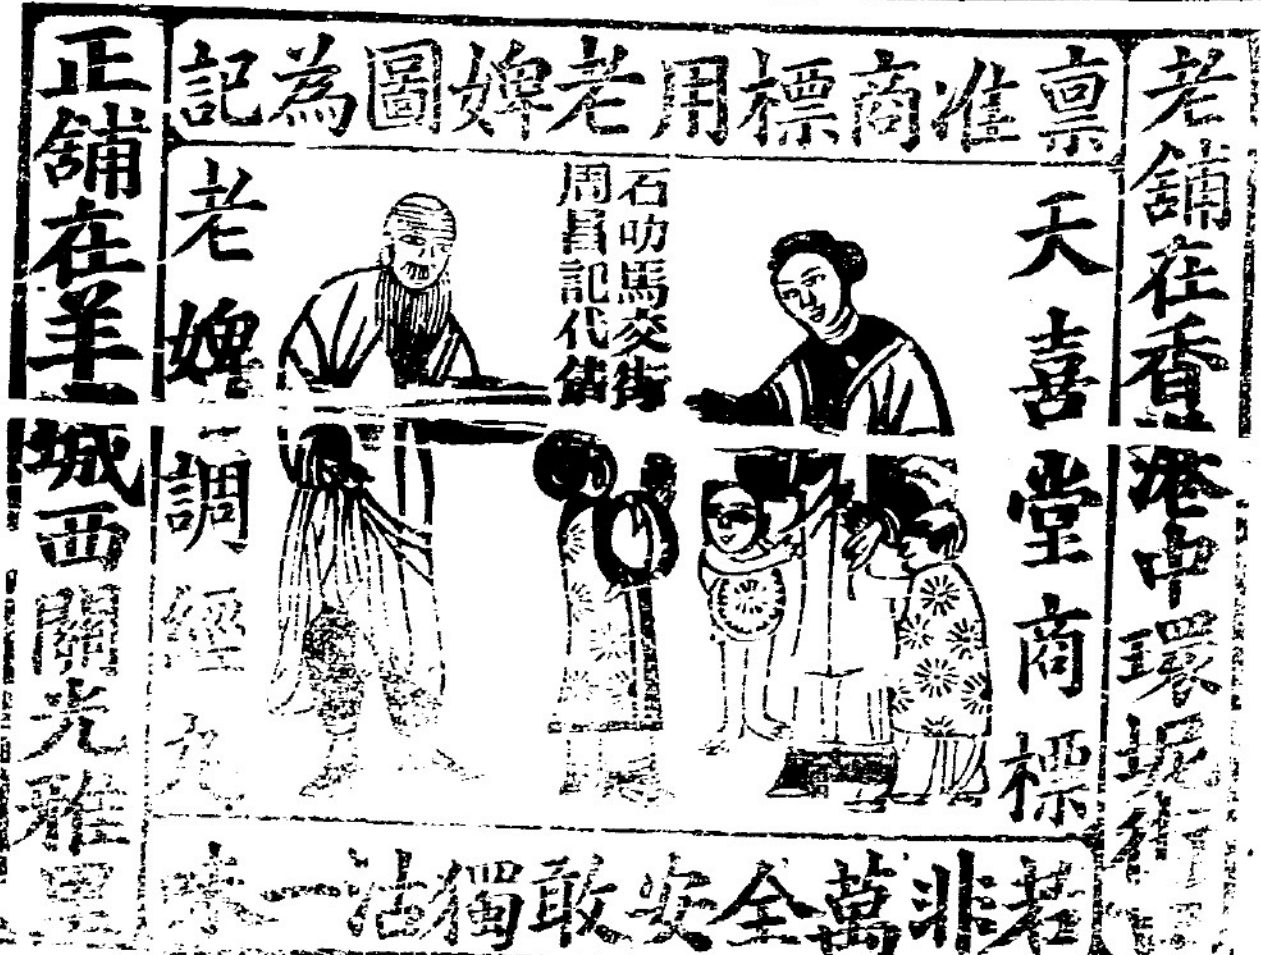 稟准商標用老婢圖為記
老舖在香港中環
天喜堂商標
石叻馬交街
周昌記代
老婢調經丸
正舖在羊城西關光雅里
若非萬全安敢獨沽一味